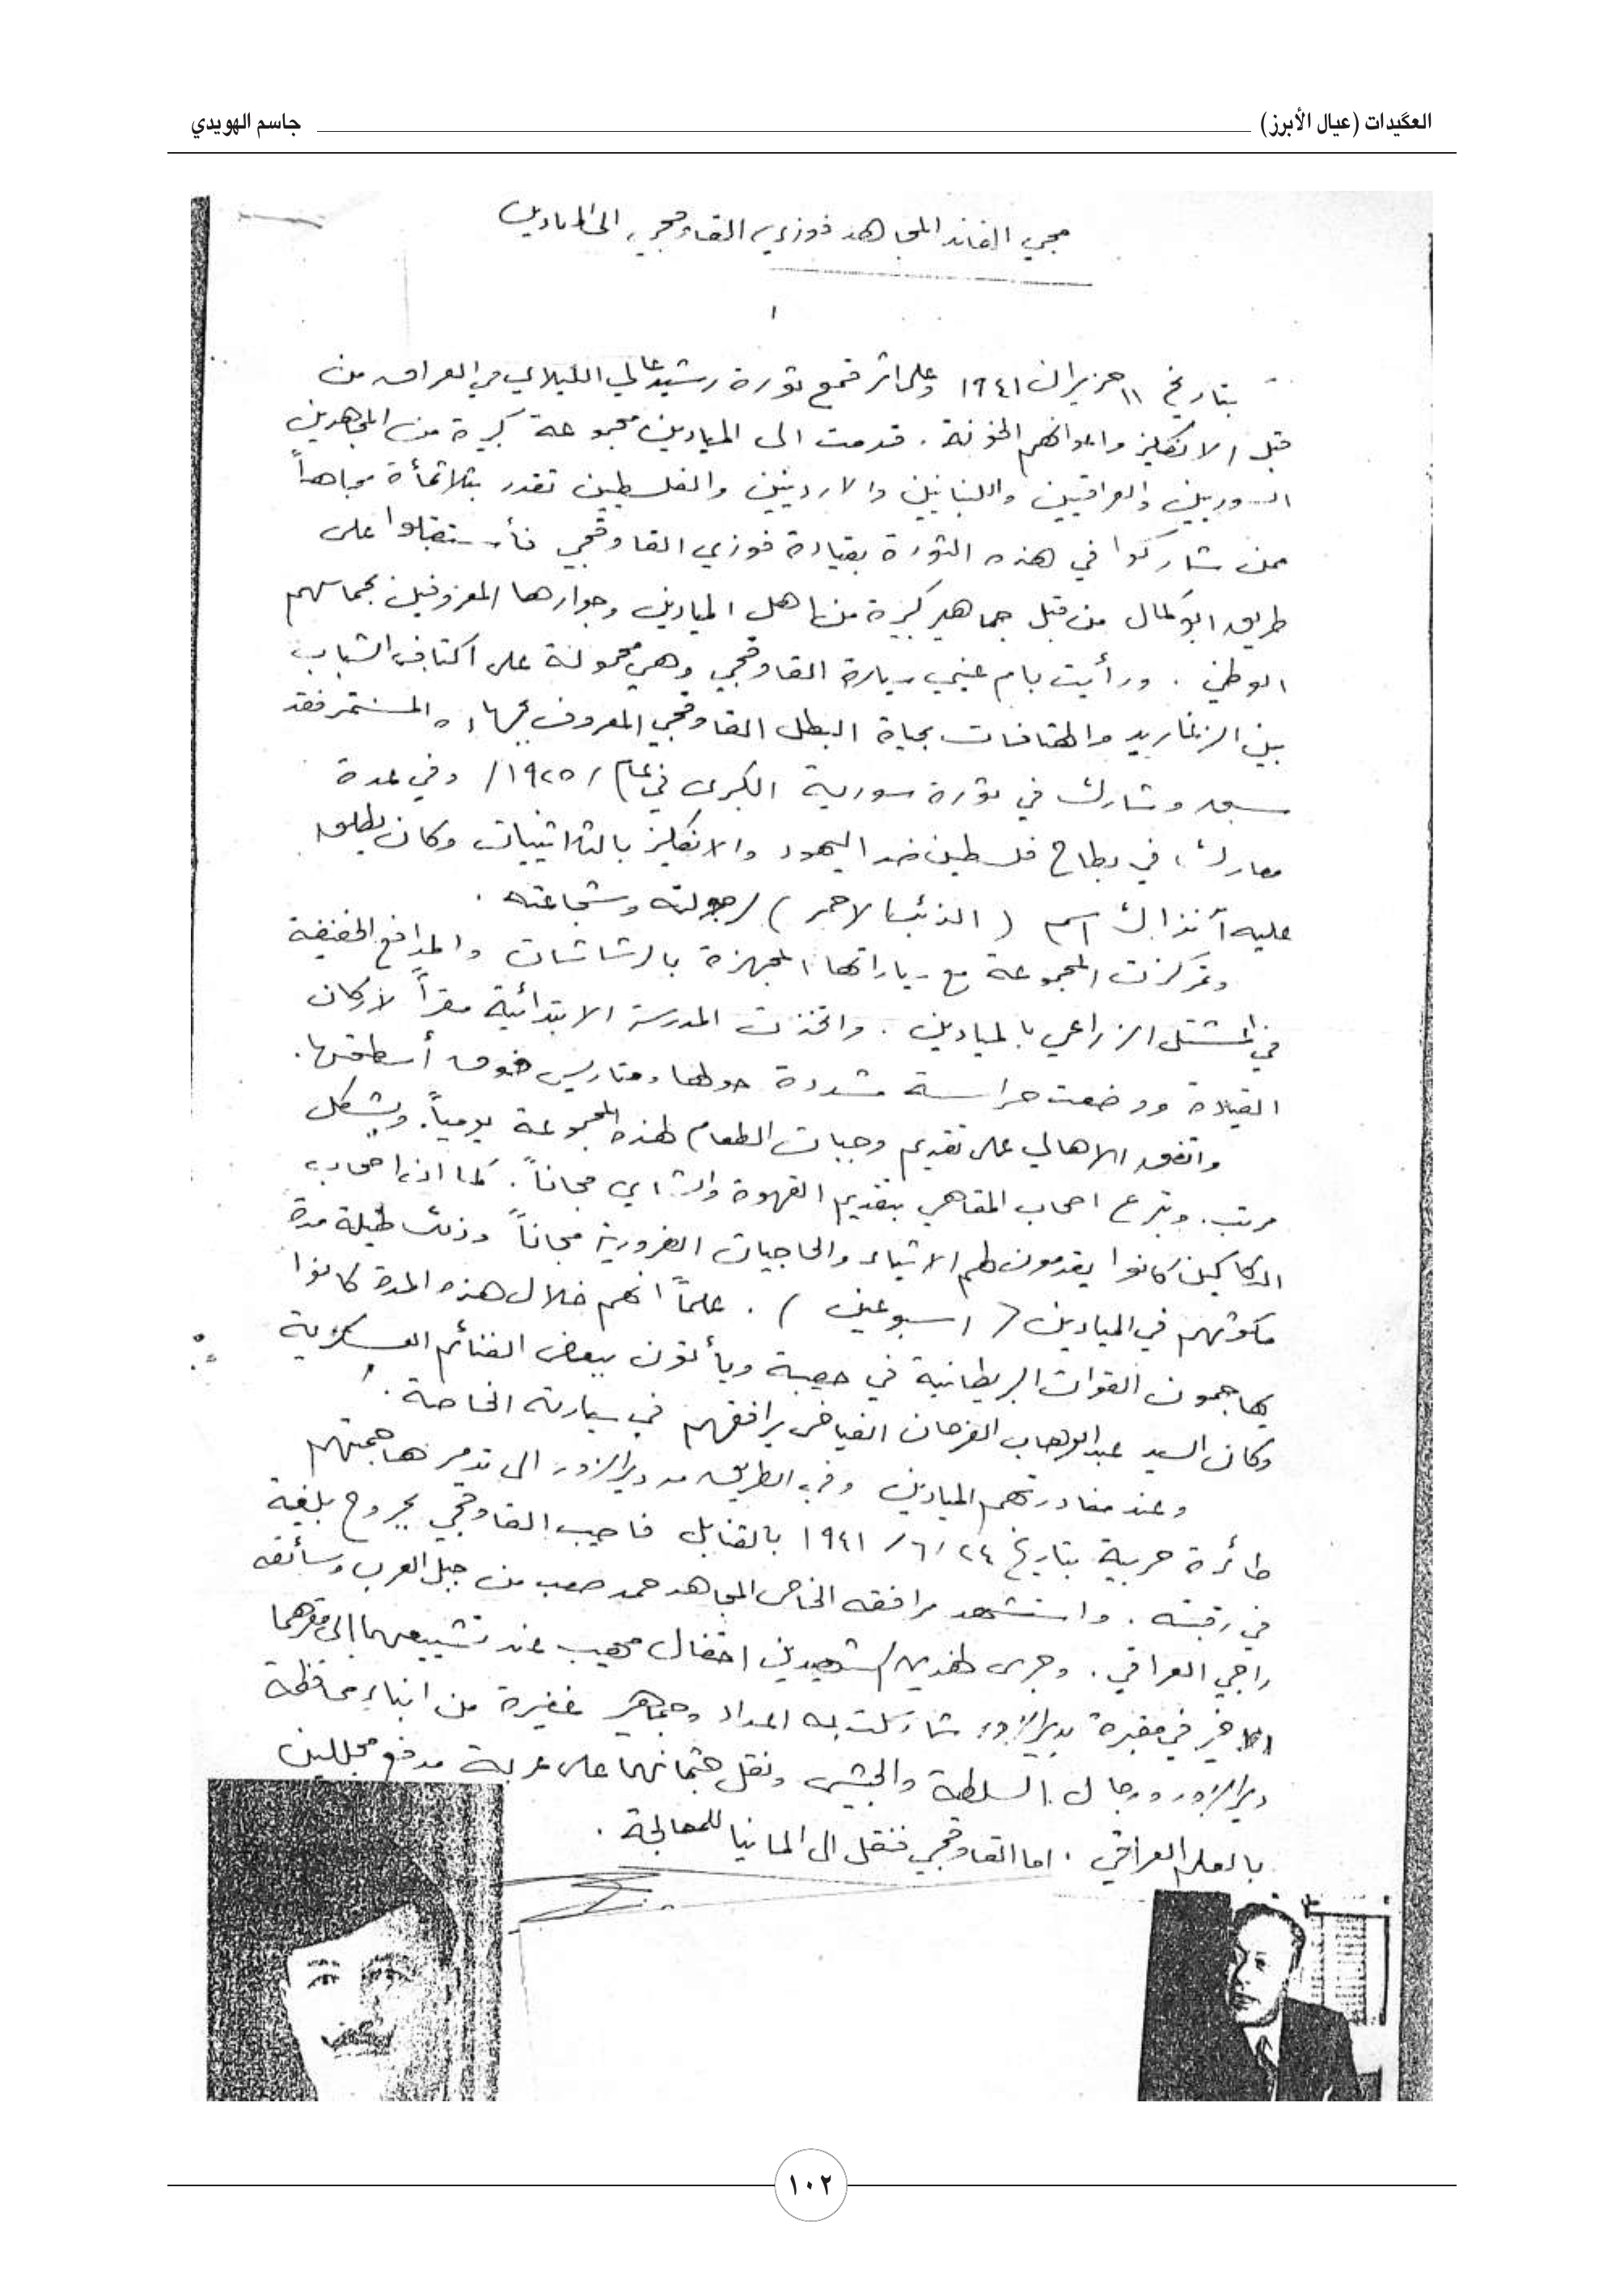 العگيدات (عيال الأبرز) جاسم الهويدي
مجيء القائد المجاهد فوزي القاوقجي الى الميادين
١
بتاريخ ١١ حزيران ١٩٤١ وعلى اثر قمع ثورة رشيد عالي الكيلاني في العراق من
قبل الانكليز واعوانهم الخونة . قدمت الى الميادين مجموعة كبيرة من المجاهدين
السوريين والعراقيين واللبنانيين والاردنيين والفلسطين تقدر بثلاثمأة مجاهداً
ممن شاركوا في هذه الثورة بقيادة فوزي القاوقجي فأستقبلوا على
طريق ابو كمال من قبل جماهير كبيرة من اهل الميادين وجوارها المعروفين بحماسهم
الوطني . ورأيت بام عيني سيارة القاوقجي وهي محمولة على اكتاف الشباب
بين الزغاريد والهتافات بحياة البطل القاوقجي المعروف بجهاده المستمر فقد
سبق وشارك في ثورة سورية الكبرى في عام /١٩٢٥/ وفي عدة
معارك في بطاح فلسطين ضد اليهود والانكليز بالثلاثينيات وكان يطلق
عليه آنذاك اسم ( الذئب الاحمر ) لرجولته وشجاعته .
وتمركزت المجموعة مع سياراتها المجهزة بالرشاشات والمدافع الخفيفة
في المشتل الزراعي بالميادين . واتخذت المدرسة الابتدائية مقراً لأركان
القيادة ووضعت حراسة مشددة حولها ومتاريس فوق أسطحتها .
واتفق الاهالي على تقديم وجبات الطعام لهذه المجموعة يومياً . وبشكل
مرتب . وتبرع اصحاب المقاهي بتقديم القهوة والشاي مجاناً . كما ان اصحاب
الدكاكين كانوا يقدمون لهم الاشياء والحاجيات الضرورية مجاناً وذلك طيلة مدة
مكوثهم في الميادين ( اسبوعين ) . علماً انهم خلال هذه المدة كانوا
يهاجمون القوات البريطانية في حصيبة ويأتون ببعض الغنائم العسكرية
وكان السيد عبدالوهاب الفرحان الفياض يرافقهم في سيارته الخاصة .
وعند مغادرتهم الميادين وفي الطريق من ديرالزور الى تدمر هاجمتهم
طائرة حربية بتاريخ ٢٤/ ٦/ ١٩٤١ بالقنابل فاصيب القاوقجي بجروح بليغة
في رقبته . واستشهد مرافقه الخاص المجاهد حمد صعب من جبل العرب وسائقه
راجي العراقي . وجرى لهذين الشهيدين احتفال مهيب عند تشييعهما الى مقرهما
الاخير في مقبرة ديرالزور شاركت به اعداد وجماهير غفيرة من ابناء محافظة
ديرالزور ورجال السلطة والجيش ونقل جثمانهما على عربة مدفع مجللين
بالعلم العراقي . اما القاوقجي فنقل الى المانيا للمعالجة .
١٠٢